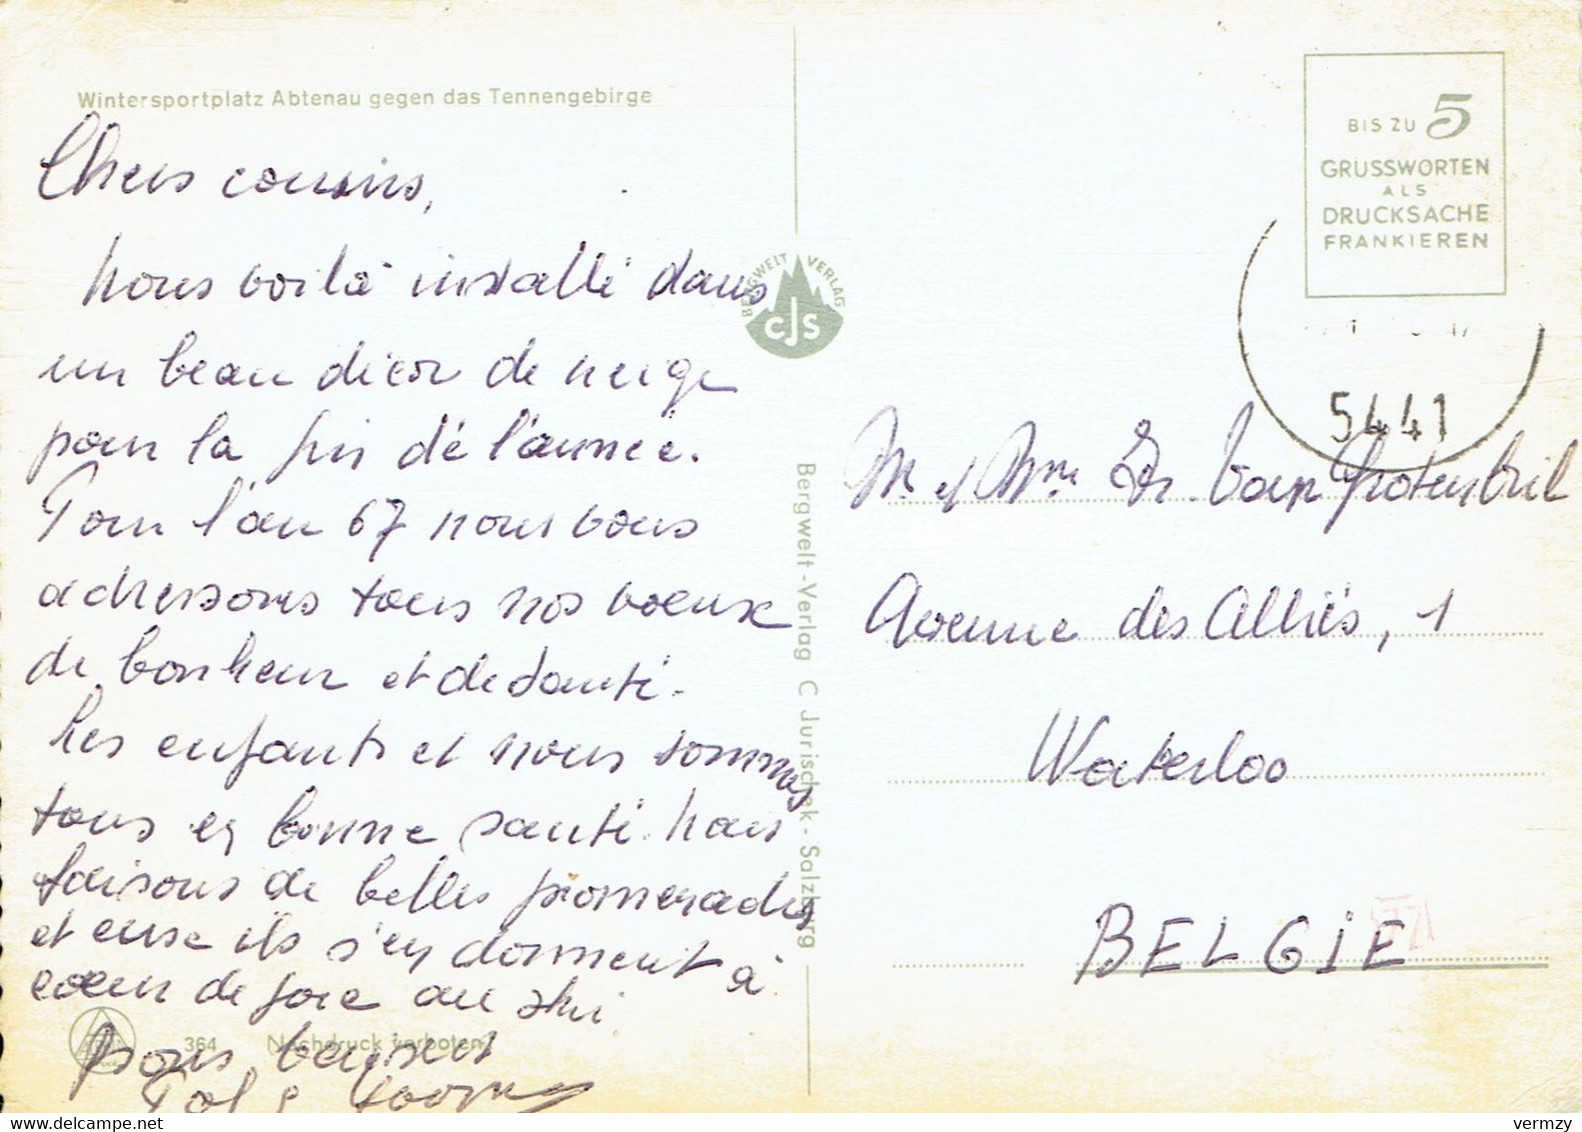 Wintersportplatz Abtenau gegen das Tennengebirge
Chers cousins,
Nous voilà installé dans
un beau décor de neige
pour la fin de l'année.
Pour l'an 67 nous vous
adressons tous nos voeux
de bonheur et de santé.
Les enfants et nous sommes
tous en bonne santé. Nous
faisons de belles promenades
et eux ils s'en donnent à
coeur de joie au ski
Bons baisers
364 Nachdruck verboten
BERGWELT VERLAG
CJS
Bergwelt-Verlag C Jurischek - Salzburg
BIS ZU 5
GRUSSWORTEN
ALS
DRUCKSACHE
FRANKIEREN
5441
M. et Mme Dr. Van
Avenue des Alliés, 1
Waterloo
BELGIE
vermzy